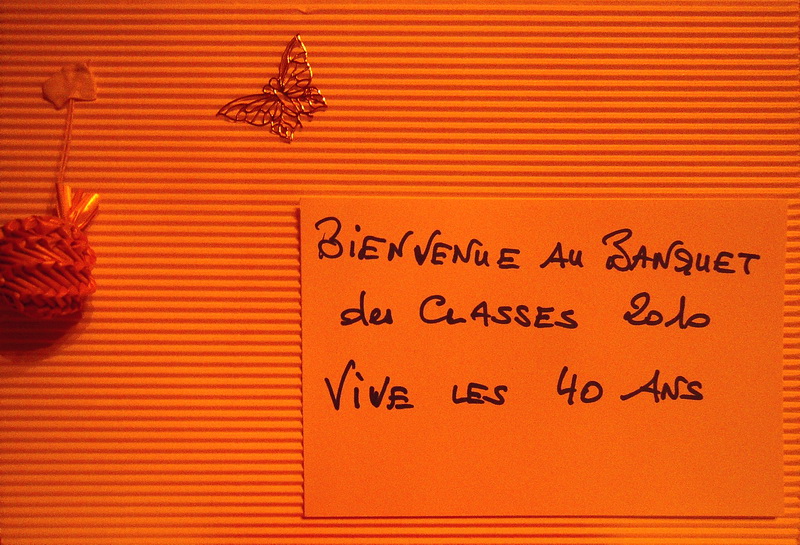 BiENVENUE AU BANQUET
des CLASSES 2010
ViVE LES 40 ANS